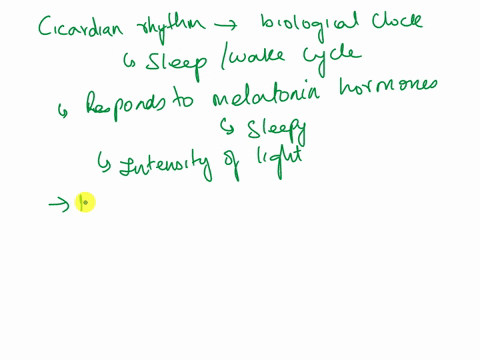 Cicardian rhythm → biological clock
↳ Sleep / wake cycle
↳ Responds to melatonin hormones
↳ Sleepy
↳ Intensity of light
→